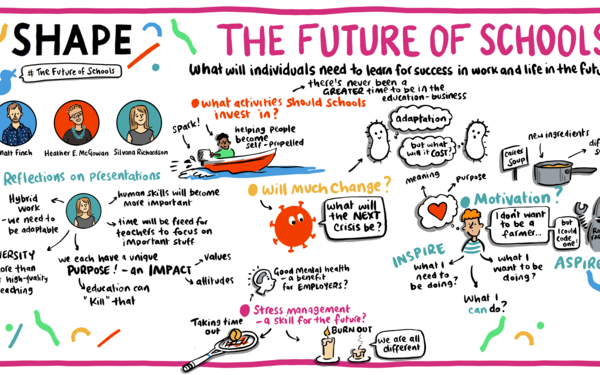 SHAPE
# The Future of Schools
THE FUTURE OF SCHOOLS
What will individuals need to learn for success in work and life in the
Matt Finch
Heather E. McGowan
Silvana Richardson
Reflections on presentations
Hybrid
work -
we need to
be adaptable
human skills will become
more important
time will be freed for
teachers to focus on
important stuff
we each have a unique
PURPOSE! - an IMPACT
values
attitudes
education can
"Kill" that
more than
high-quality
What activities should Schools
invest in?
there's never been a
GREATER time to be in the
education-business
Spark!
helping people
become
self-propelled
adaptation
but what
will it COST?
Will much Change?
What
will the
NEXT
Crisis be?
meaning
purpose
Good Mental health
- a benefit
for EMPLOYERS?
Stress management
- a skill for the future?
Taking time
out
BURN OUT
we are all
different
new ingredients
career
Soup
Motivation?
I don't want
to be a
farmer...
but
I could
code
one!
INSPIRE
ASPIRE
What I
need to
be doing?
What I
want to be
doing?
What I
can do?